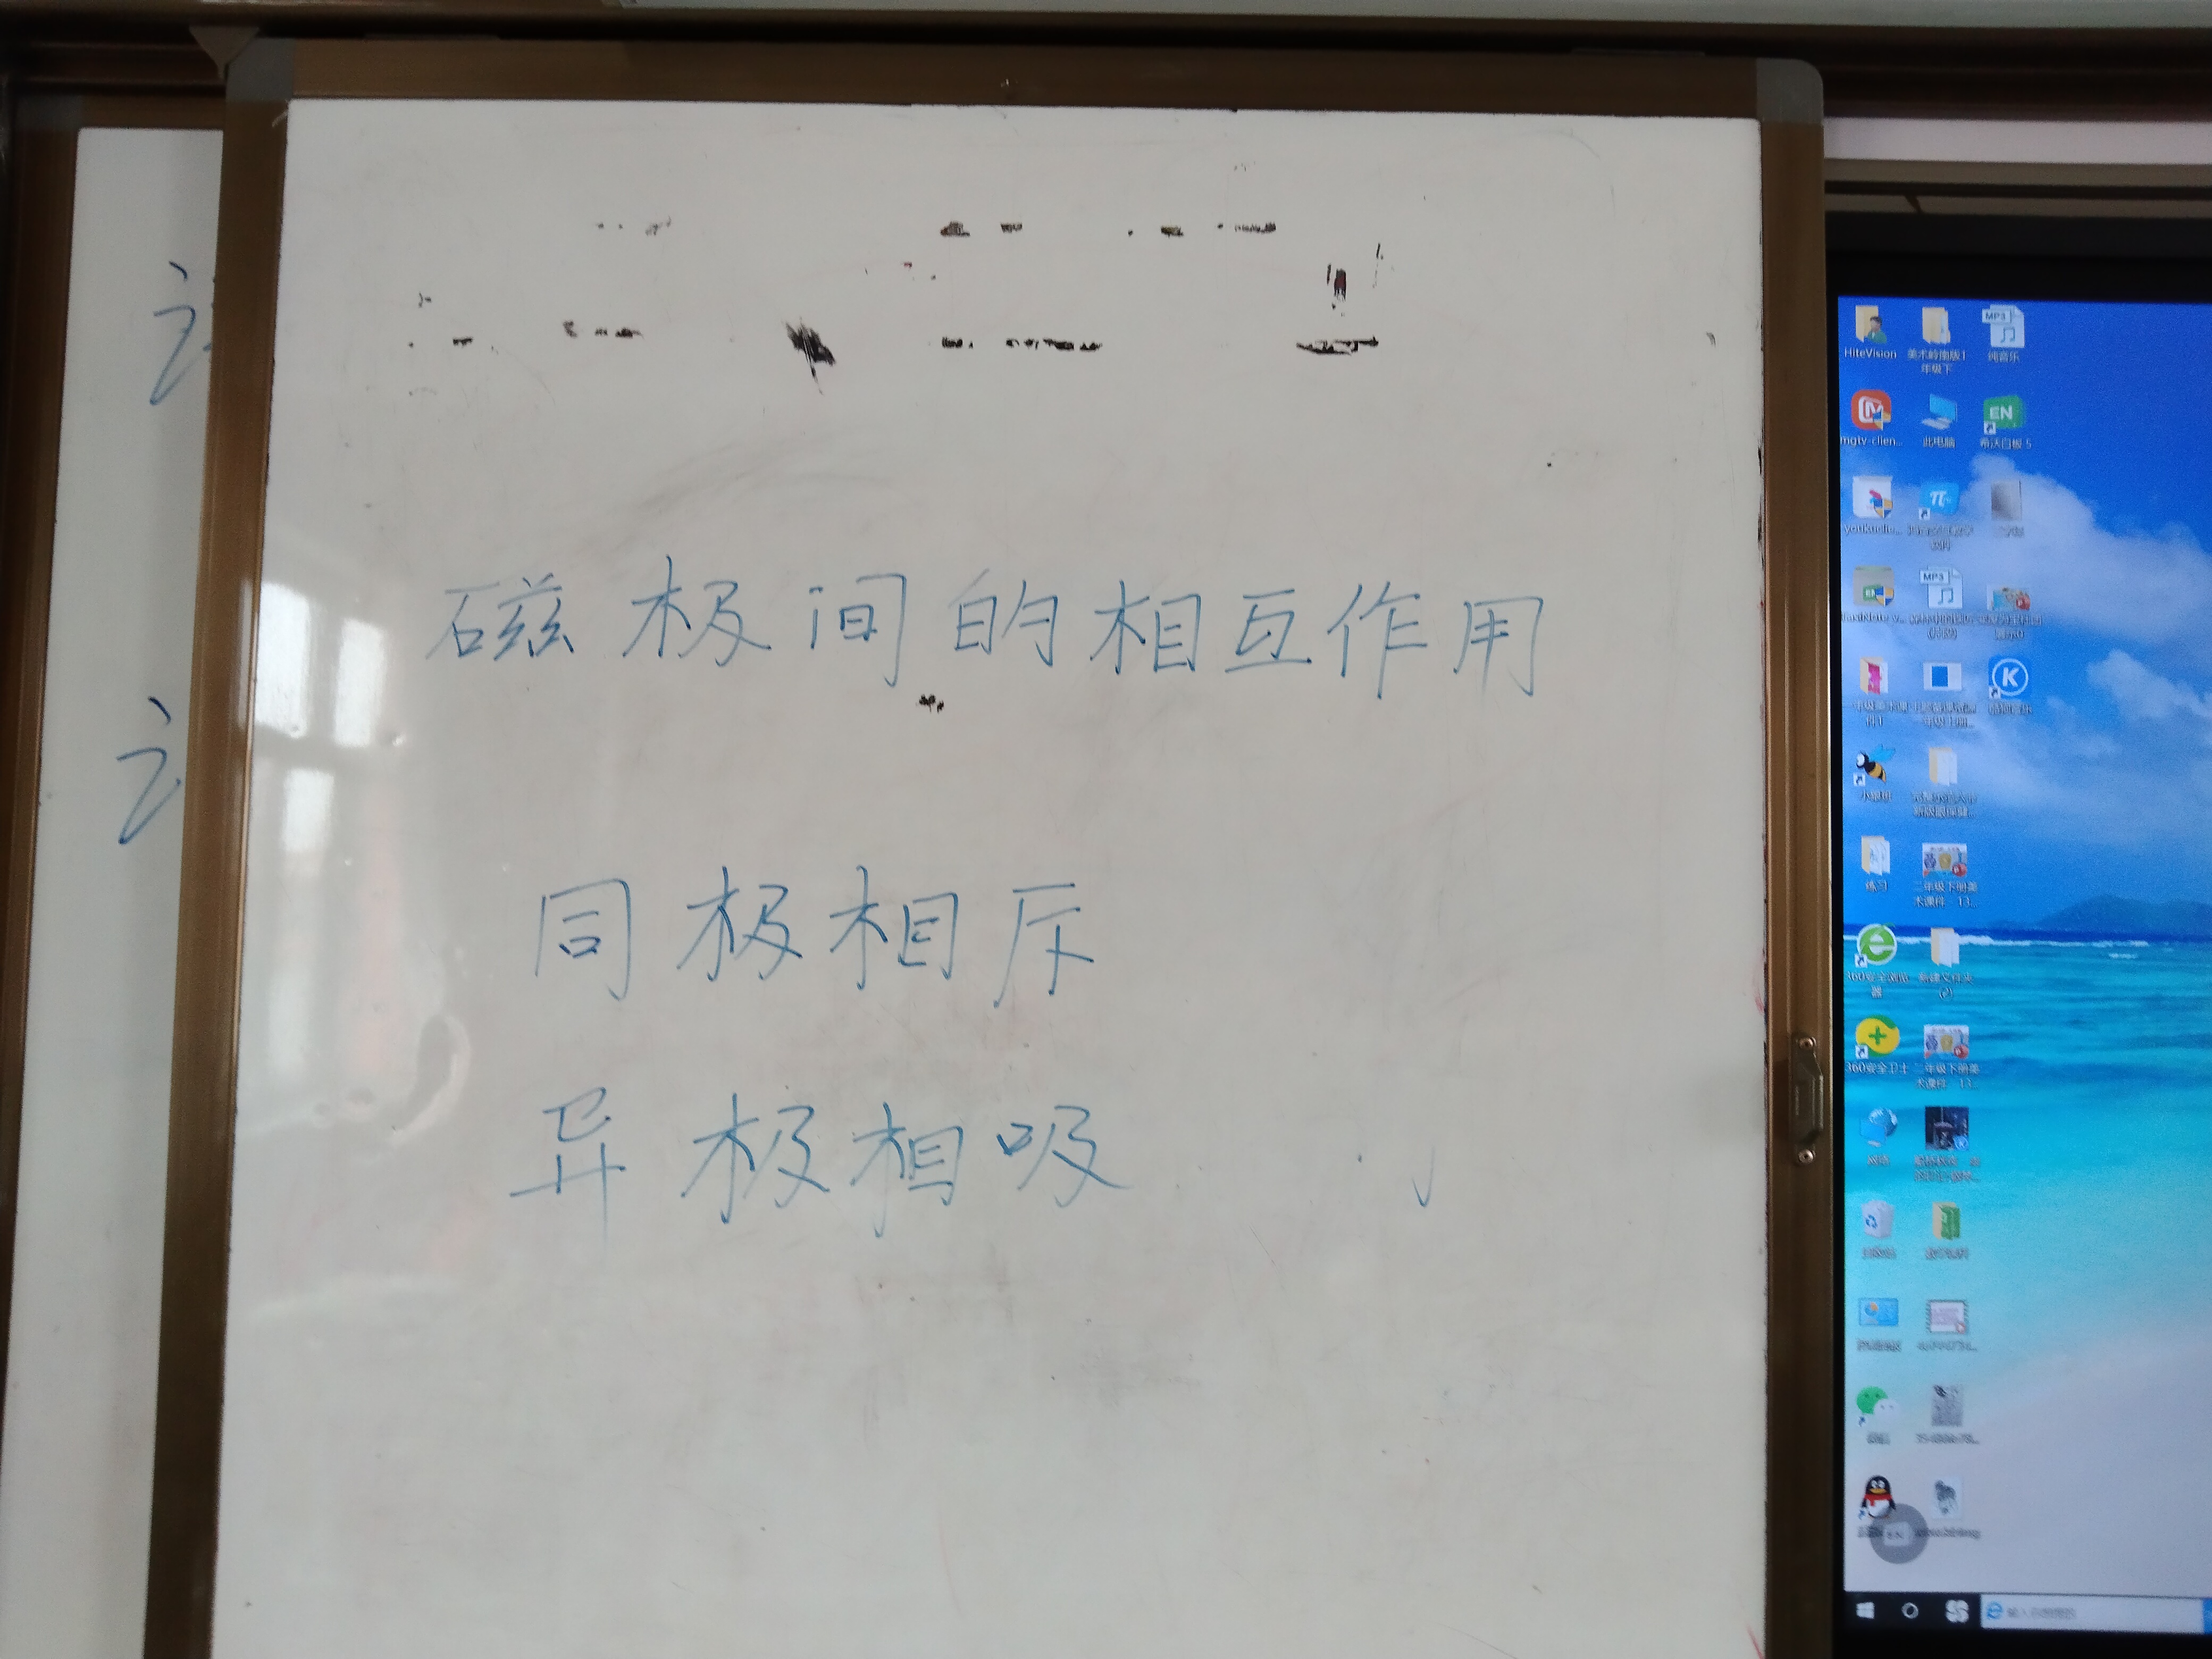 磁极间的相互作用
同极相斥
异极相吸
HiteVision
美术岭南版1
年级下
纯音乐
mgtv-clien...
此电脑
希沃白板 5
EN
MP3
MP3
练习
二年级下册美
术课件 - 13...
360安全浏览
器
新建文件夹
(2)
360安全卫士
二年级下册美
术课件 - 13...